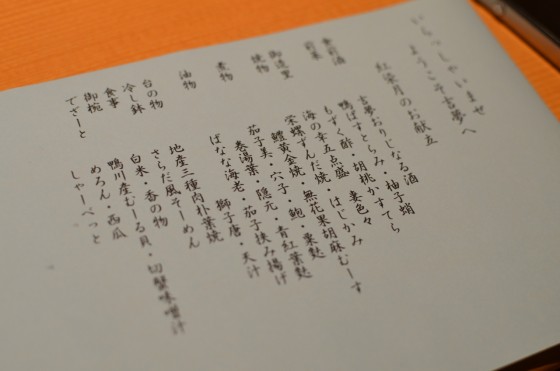 いらっしゃいませ
ようこそ古夢へ
紅染月のお献立
食前酒 古夢おりじなる酒
前菜 鴨ぱすとらみ・柚子蛸
もずく酢・胡桃かすてら
妻色々
御造里 海の幸五点盛
焼物 栄螺ずんだ焼・無花果胡麻むーす
鱧黄金焼・はじかみ
煮物 茄子美・穴子・鮑・粟麩
巻湯葉・隠元・青紅葉麩
油物 ばなな海老・茄子挟み揚げ
獅子唐・天汁
台の物 地産三種肉朴葉焼
冷し鉢 さらだ風そーめん
食事 白米・香の物
御椀 鴨川産むーる貝・切蟹味噌汁
でざーと めろん・西瓜
しゃーべっと